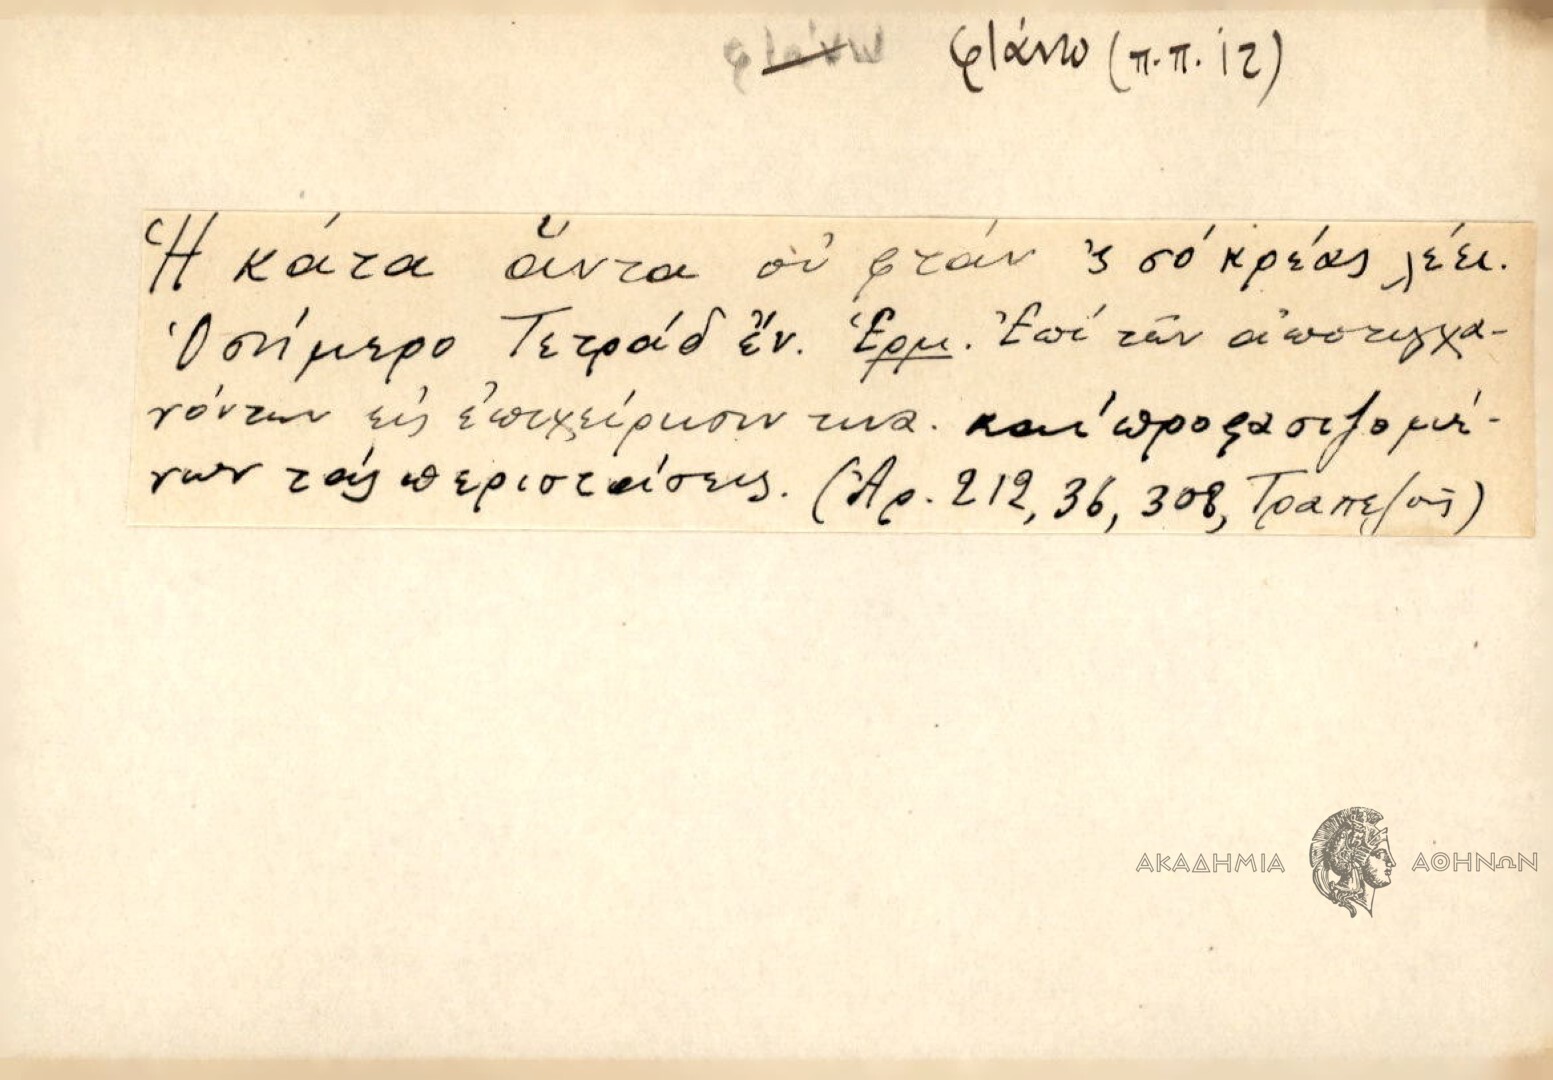 φτάνω φτάνω (π.π. 12)
Ἡ κάτα ἅντα οὐ φτάν 'ς σὸ κρέας λέει.
Ὁ σήμερο Τετράδ ἔν. Ἑρμ. Ἐπὶ τῶν ἀποτυγχα-
νόντων εἰς ἐπιχείρησιν τινα. καὶ προφασιζομέ-
νων τὰς περιστάσεις. (Ἀρ. 212, 36, 308, Τραπεζοῦς)
ΑΚΑΔΗΜΙΑ ΑΘΗΝΩΝ